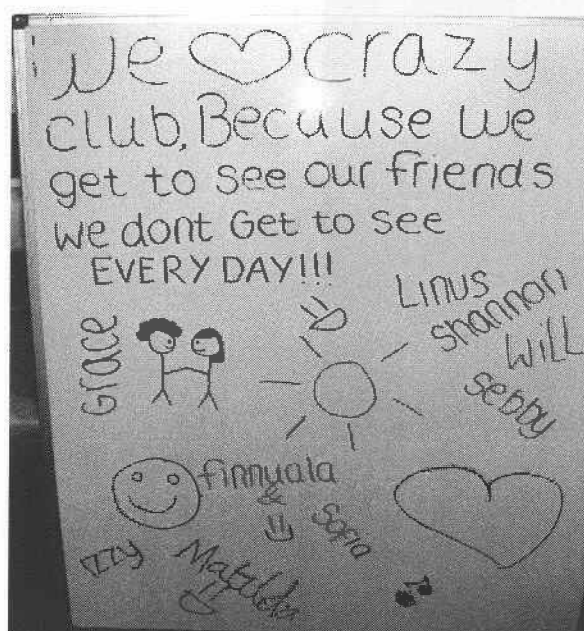 We crazy
club, Becuase we
get to see our friends
we dont Get to see
EVERY DAY!!!
Linus
Shannon
Will
Sebby
Grace
finnuala
&
Sofia
Izzy
Matilda